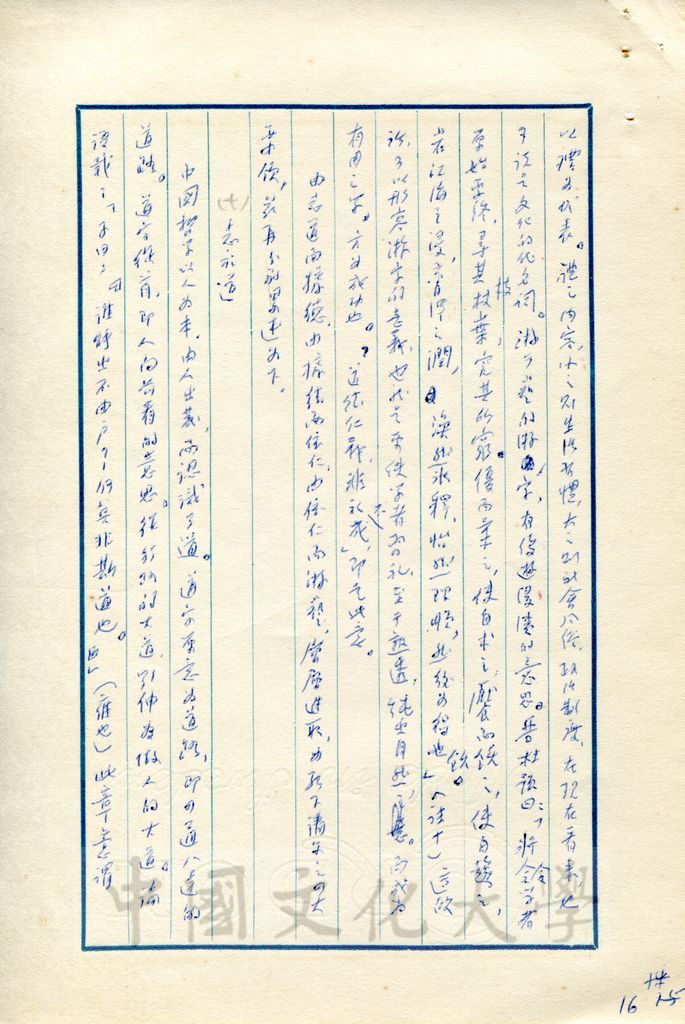 以禮為代表。禮之內容，小之則生活習慣，大之則社會風俗，政治制度，在現在看來也
可說是文化的代名詞。游於藝的游字，有優遊浸漬的意思。晉杜預曰：「將令學者
原始要終，尋其枝葉，究其所窮。優而柔之，使自求之，饜而飫之，使自趨之，
若江海之浸，膏澤之潤，渙然冰釋，怡然理順，然後為得也」（註十）這段
話可以形容游字的意義，也就是要使學者習禮，至于熟透，純出自然，而成為
有用之學。方為成功也。「道德仁義，非禮不成」即是此意。
由志道而據德，由據德而依仁，由依仁而游藝，層層進取，為孔子講學之四大
要領，茲再分別略述如下。
(七)志於道
中國哲學以人為本，由人出發，而認識了道。道字原意為道路，即四通八達的
道路。道字從首，即人向前看的意思。從行路的大道，引伸為做人的大道。論
語載：「子曰：『誰能出不由戶，何莫非斯道也。』」（雍也）此章意謂
中國文化大學
16 15